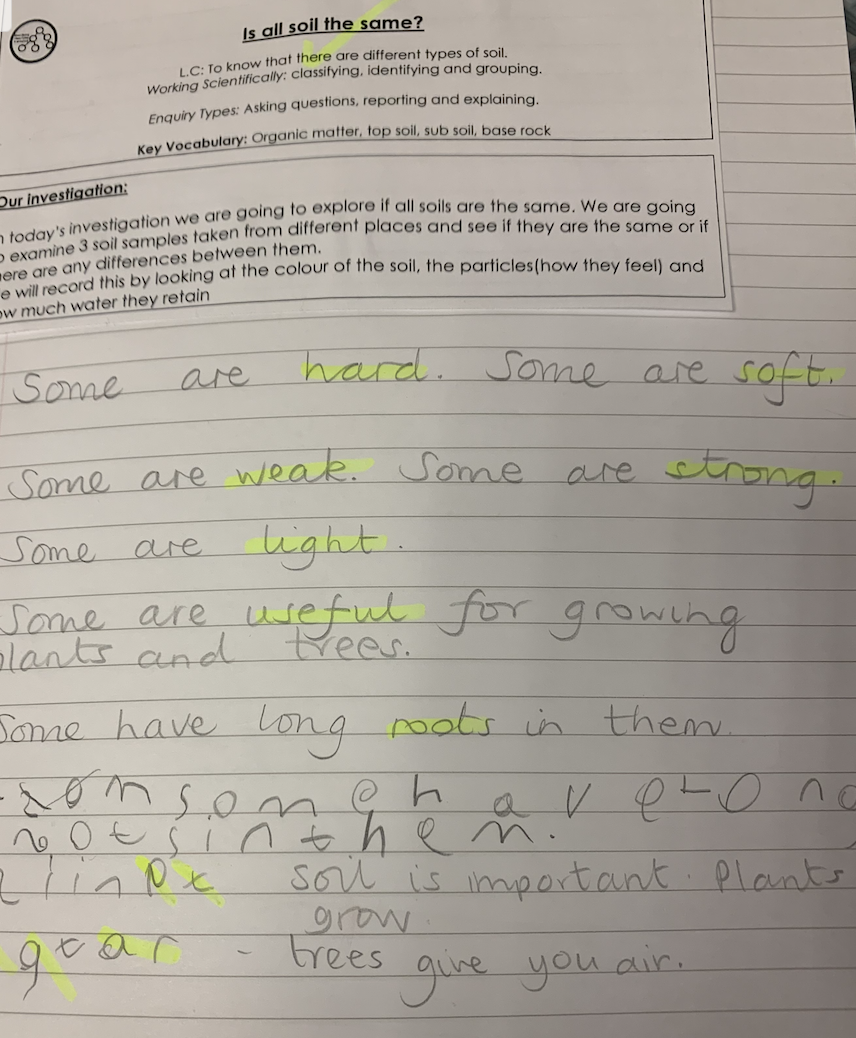 Is all soil the same?
L.C: To know that there are different types of soil.
Working Scientifically: classifying, identifying and grouping.
Enquiry Types: Asking questions, reporting and explaining.
Key Vocabulary: Organic matter, top soil, sub soil, base rock
Our investigation:
n today's investigation we are going to explore if all soils are the same. We are going
o examine 3 soil samples taken from different places and see if they are the same or if
ere are any differences between them.
e will record this by looking at the colour of the soil, the particles(how they feel) and
ow much water they retain
Some are hard. Some are soft.
Some are weak. Some are strong.
Some are light.
Some are useful for growing
plants and trees.
Some have long roots in them.
som some h a v e L O n g
r o t s i n t h e m.
soil is important. Plants
grow.
g t a r - trees give you air.